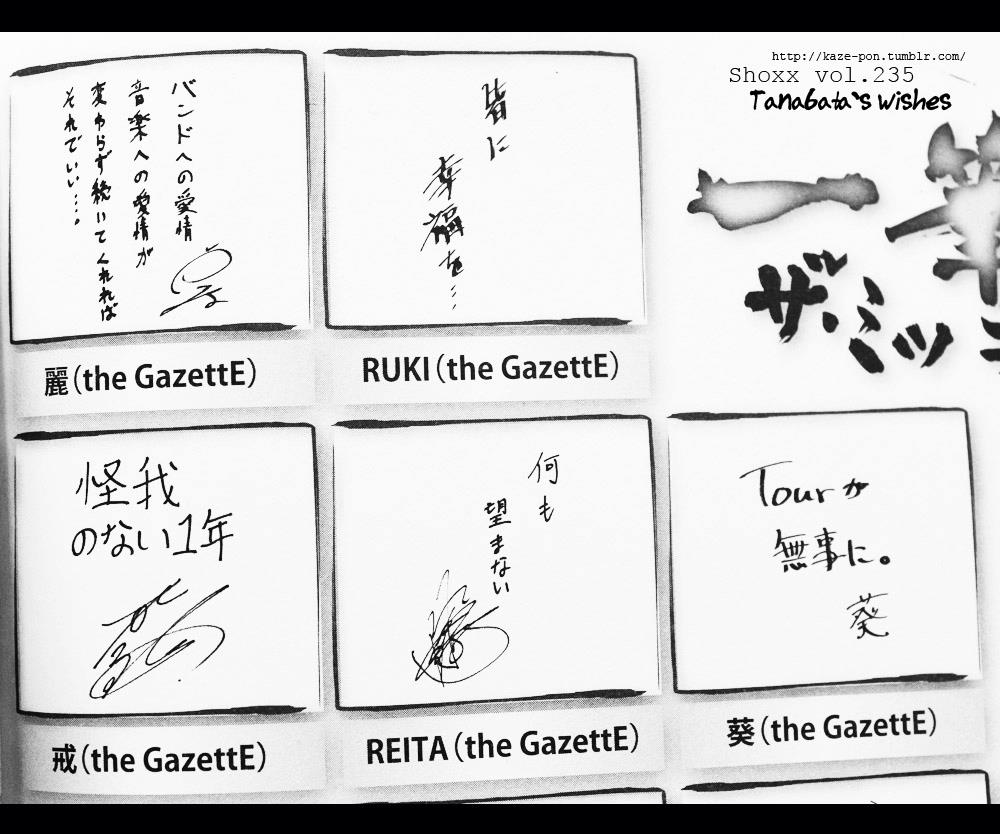 http://kaze-pon.tumblr.com/
Shoxx vol.235
Tanabata`s wishes
一筆
ザ・ミッ
バンドへの愛情
音楽への愛情が
変わらず続いてくれれば
それでいい….。
麗(the GazettE)
皆に
幸福を…
RUKI(the GazettE)
怪我
のない1年
戒(the GazettE)
何も
望まない
REITA(the GazettE)
Tourが
無事に。
葵
葵(the GazettE)